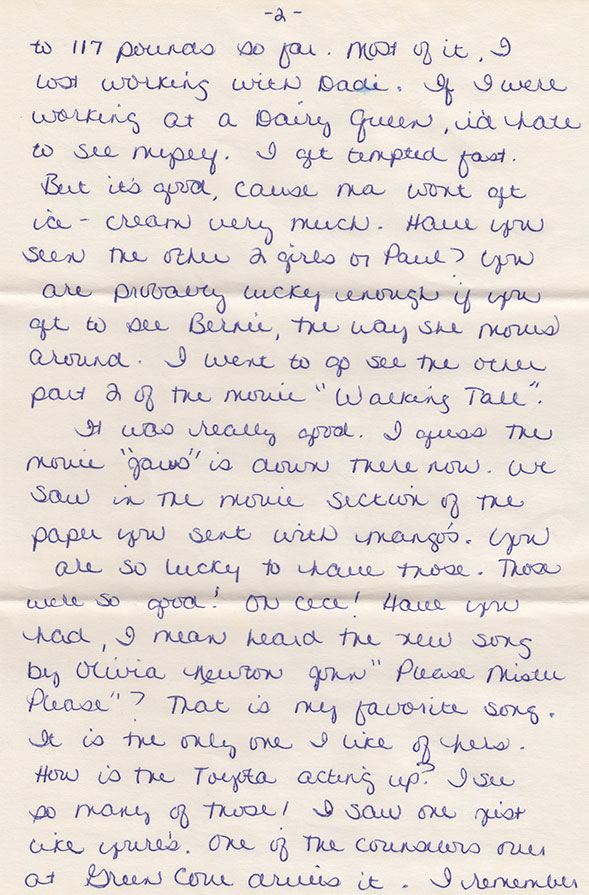 -2-
to 117 pounds so far. Most of it, I
lost working with Dadi. If I were
working at a Dairy Queen, i'd hate
to see myself. I get tempted fast.
But it's good, cause ma wont get
ice-cream very much. Have you
seen the other 2 girls or Paul? You
are probably lucky enough if you
get to see Bernie, the way she moves
around. I went to go see the other
part 2 of the movie "Walking Tall".
It was really good. I guess the
movie "Jaws" is down there now. We
saw in the movie section of the
paper you sent with mango's. You
are so lucky to have those. Those
were so good! Oh cece! Have you
had, I mean heard the new song
by Olivia Newton John "Please Mister
Please"? That is my favorite song.
It is the only one I like of hers.
How is the Toyota acting up? I see
so many of those! I saw one just
like your's. One of the counselers over
at Green Cove drives it. I remember